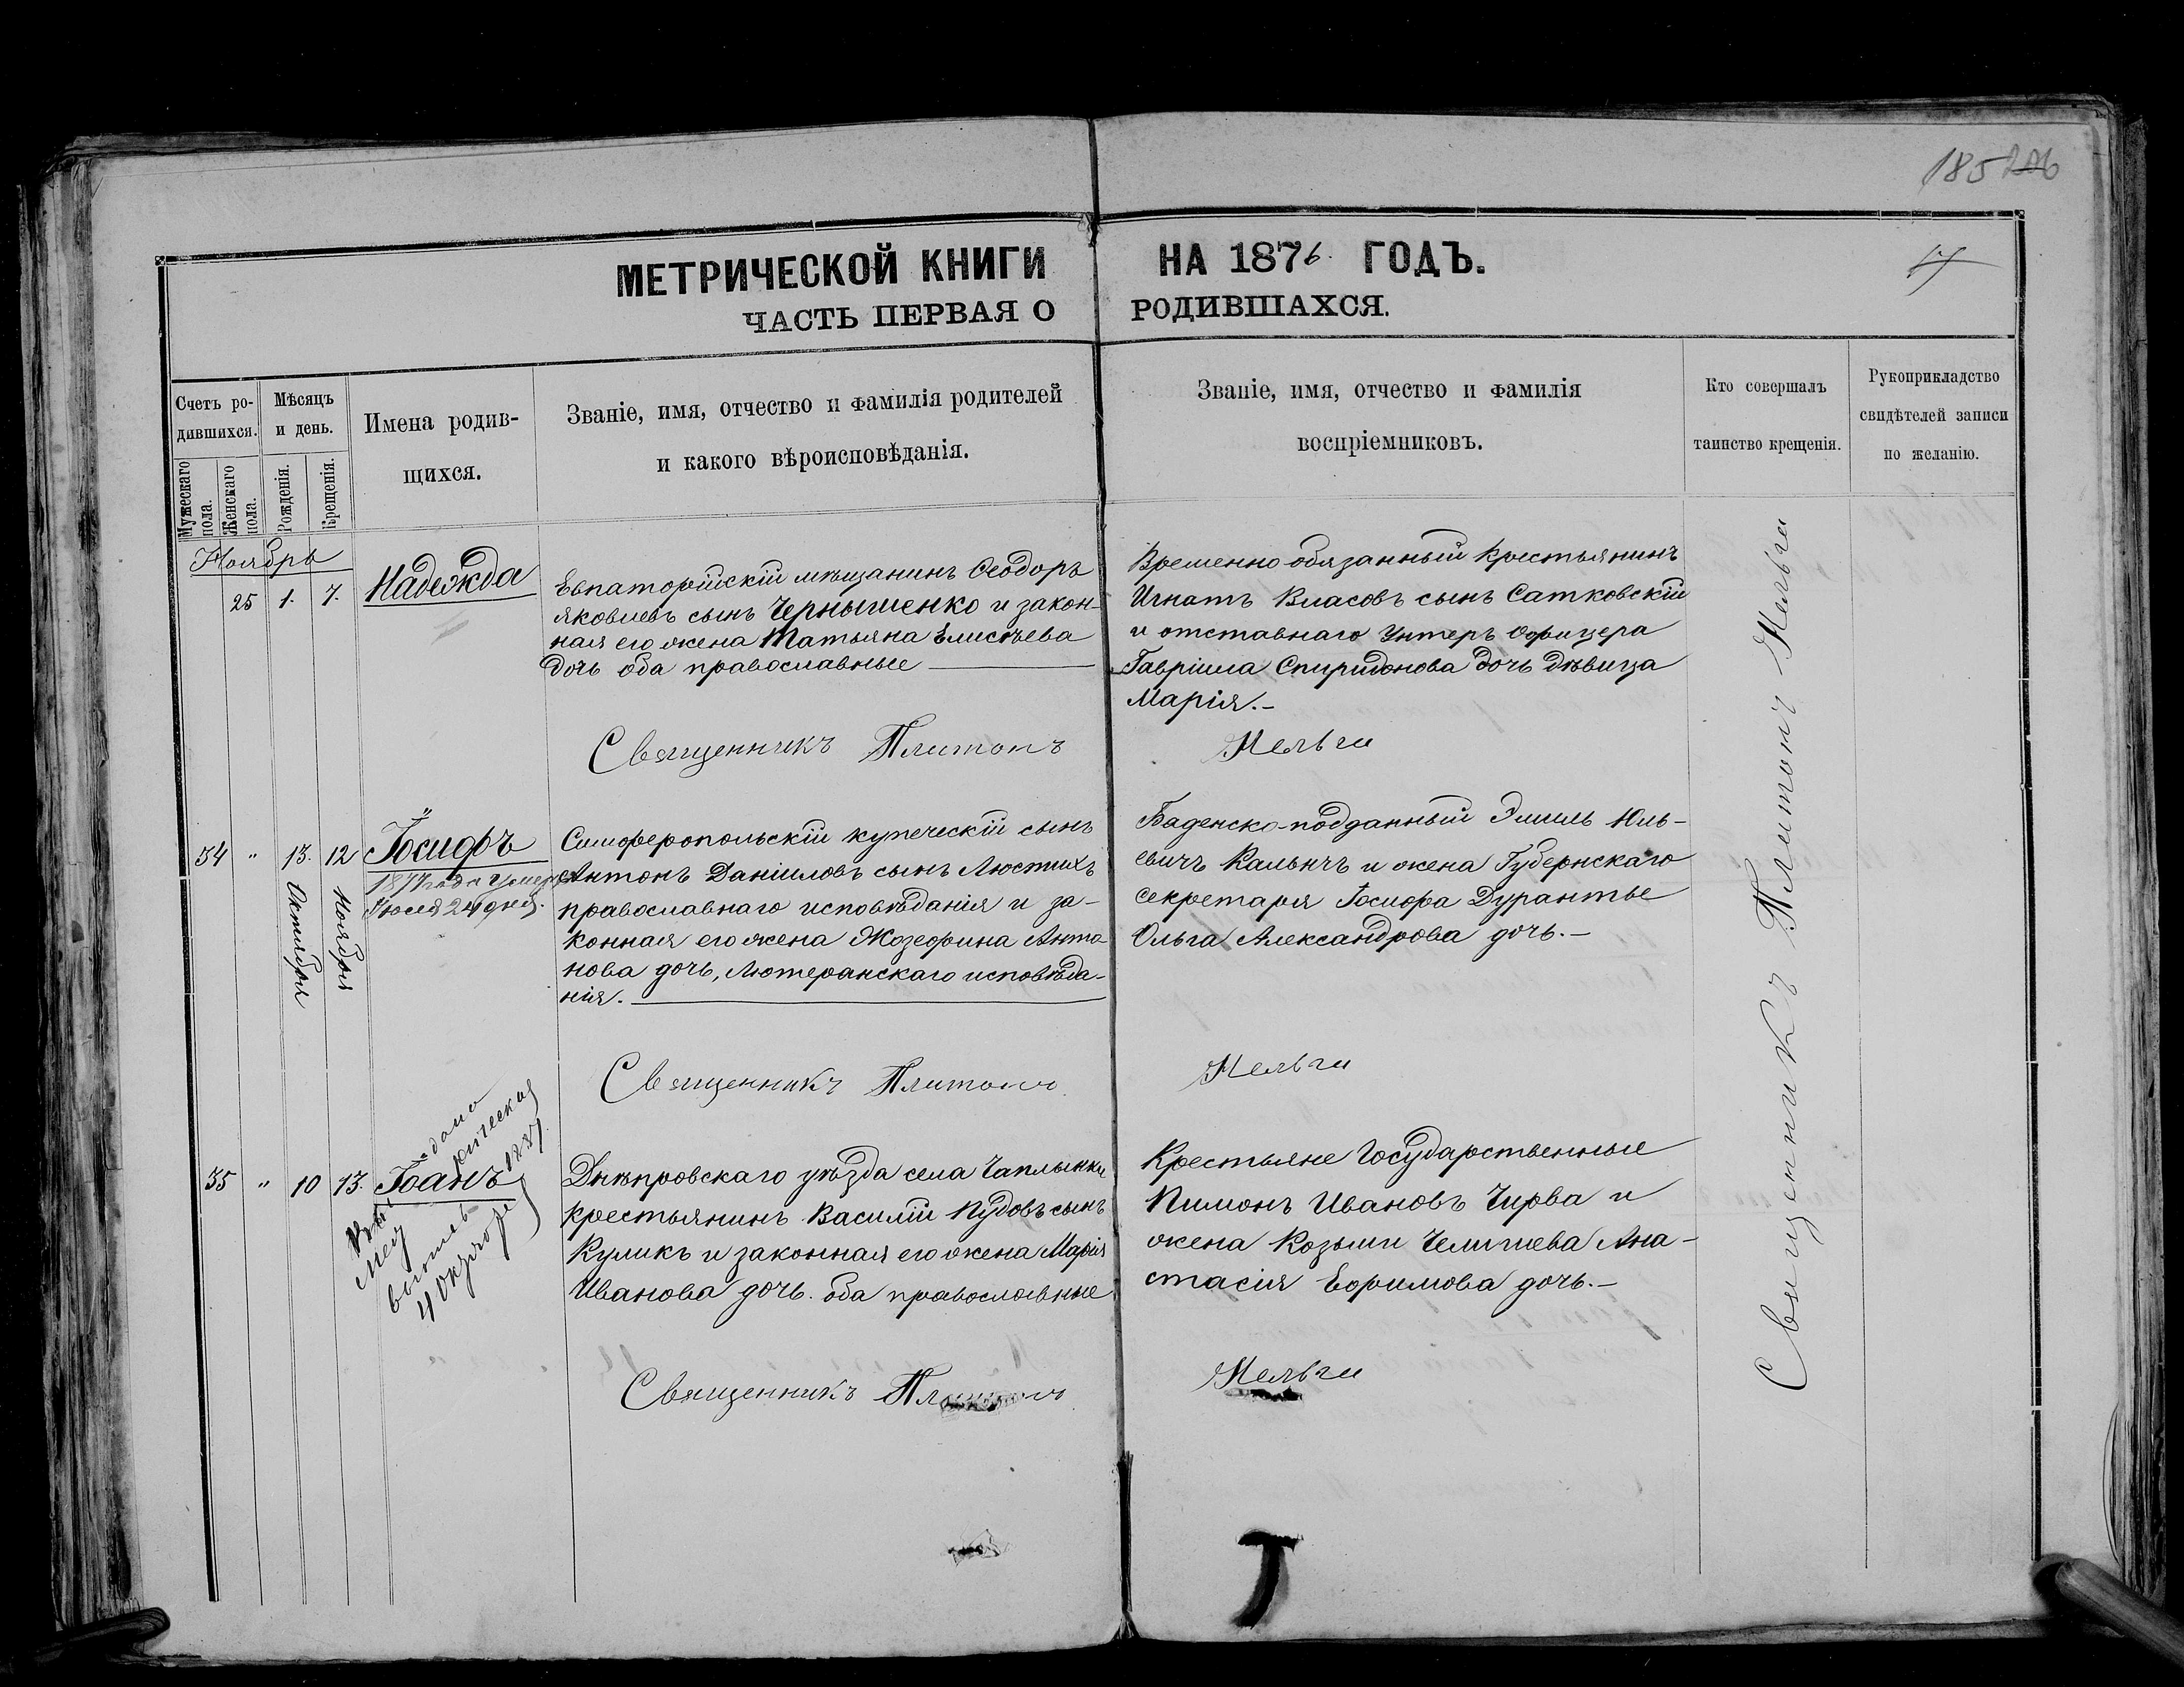 185
МЕТРИЧЕСКОЙ КНИГИ НА 1876 ГОДЪ.
ЧАСТЬ ПЕРВАЯ О РОДИВШАХСЯ.
Счетъ ро-
дившихся.
Мужескаго пола.
Женскаго пола.
Мѣсяцъ
и день.
Рожденія.
Крещенія.
Имена родив-
щихся.
Званіе, имя, отчество и фамилія родителей
и какого вѣроисповѣданія.
Званіе, имя, отчество и фамилія
воспріемниковъ.
Кто совершалъ
таинство крещенія.
Рукоприкладство
свидѣтелей записи
по желанію.
Ноябрь
25 1. 7. Надежда
Евпаторійскій мѣщанинъ Ѳеодоръ
Яковлевъ сынъ Чернышенко и закон-
ная его жена Татьяна Елисѣева
дочь оба православные
Временно-обязанный крестьянинъ
Игнатъ Власовъ сынъ Сатковскій
и отставнаго Унтеръ Офицера
Гавріила Спиридонова дочь дѣвица
Марія.-
Священникъ Платонъ
34 " 13. 12 Іосифъ
Октября
Ноября
1877 года умеръ
Іюля 24 дня.
Симферопольскій купеческій сынъ
Антонъ Даніиловъ сынъ Люстихъ
православнаго исповѣданія и за-
конная его жена Жозефина Анто-
нова дочь, Лютеранскаго исповѣда-
нія.
Баденско-подданный Эмиль Юль-
евичъ Кальнъ и жена Губернскаго
секретаря Іосифа Дурантье
Ольга Александрова дочь.-
Священникъ Платонъ
35 " 10 13. Іоанъ
Днѣпровскаго уѣзда села Чаплынки
крестьянинъ Василій Пудовъ сынъ
Куликъ и законная его жена Марія
Иванова дочь. оба православные
Крестьяне Государственные
Пимонъ Ивановъ Чирва и
жена Козьмы Челишева Ана-
стасія Ефимова дочь.-
Священникъ Платонъ
Священникъ Платонъ